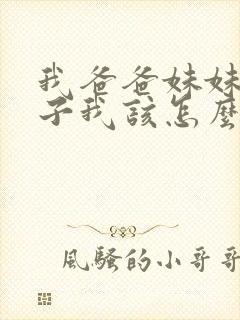 我爸爸妹妹
子我该怎麼
風騷的小哥哥